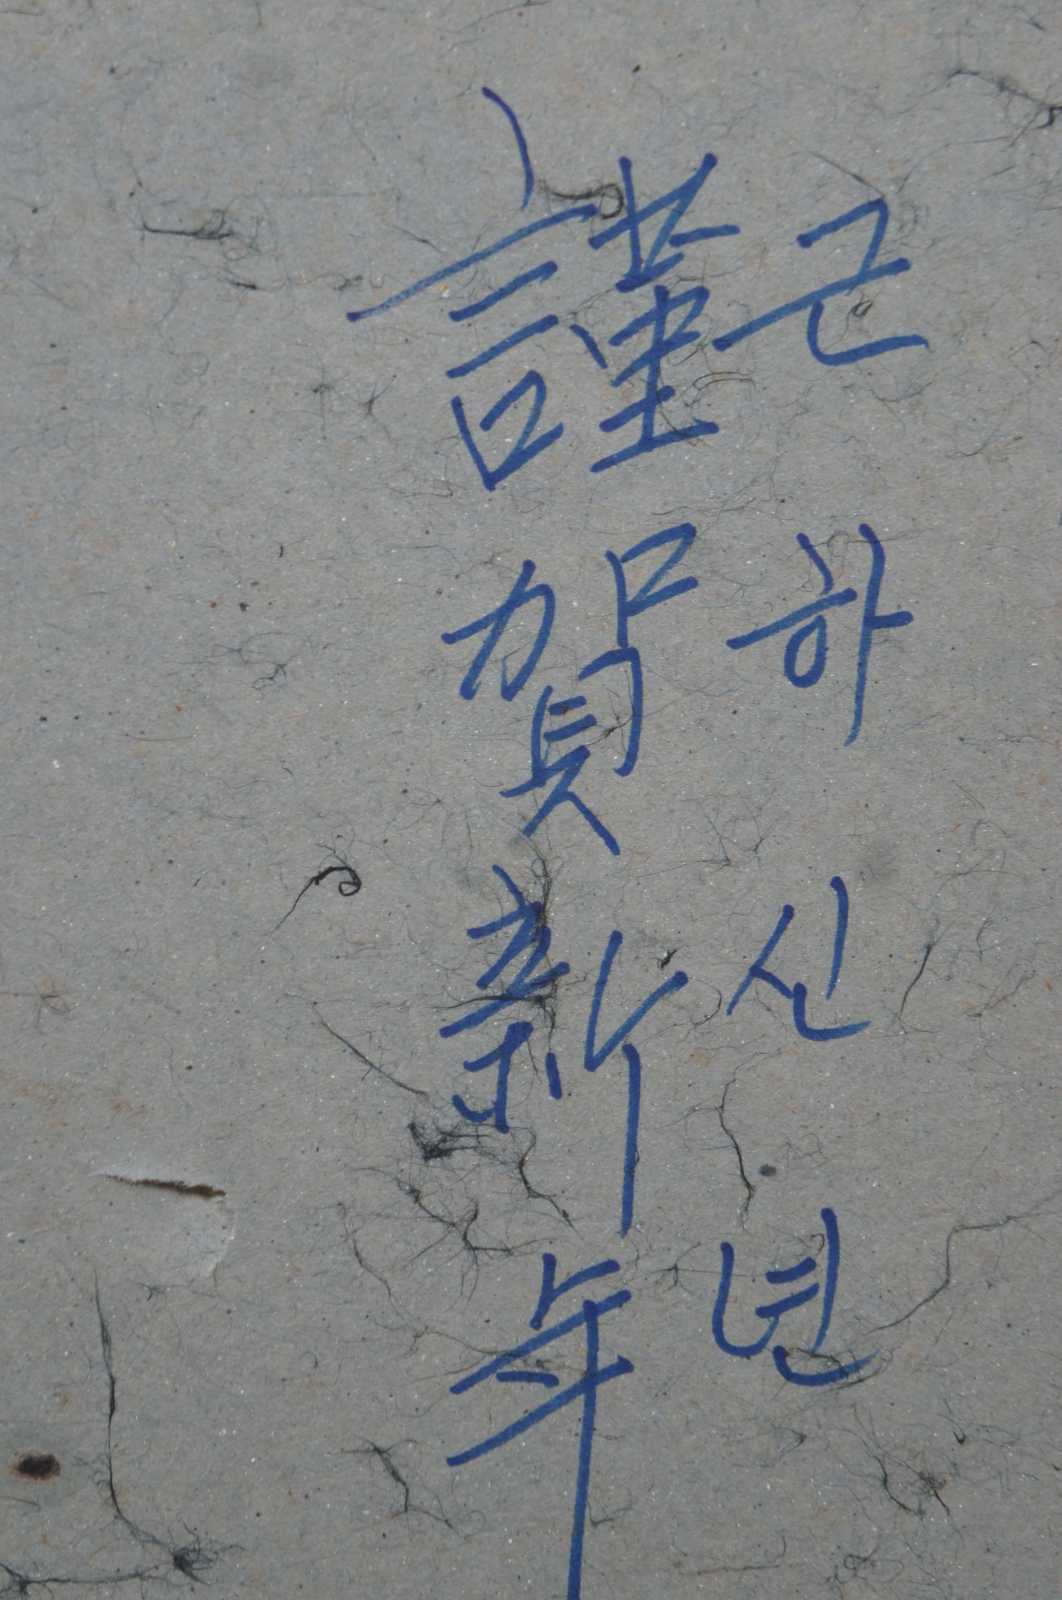 근하신년
謹賀新年